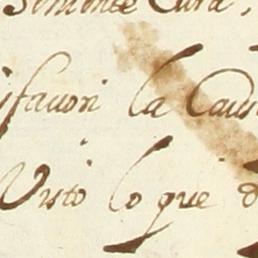 Cura,
favori la Caus
Visto lo que d